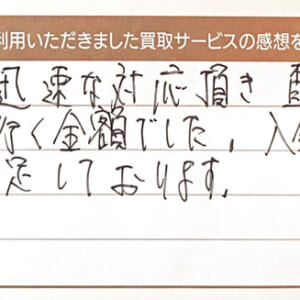 利用いただきました買取サービスの感想を
迅速な対応頂き
行く金額でした、入
足しております。